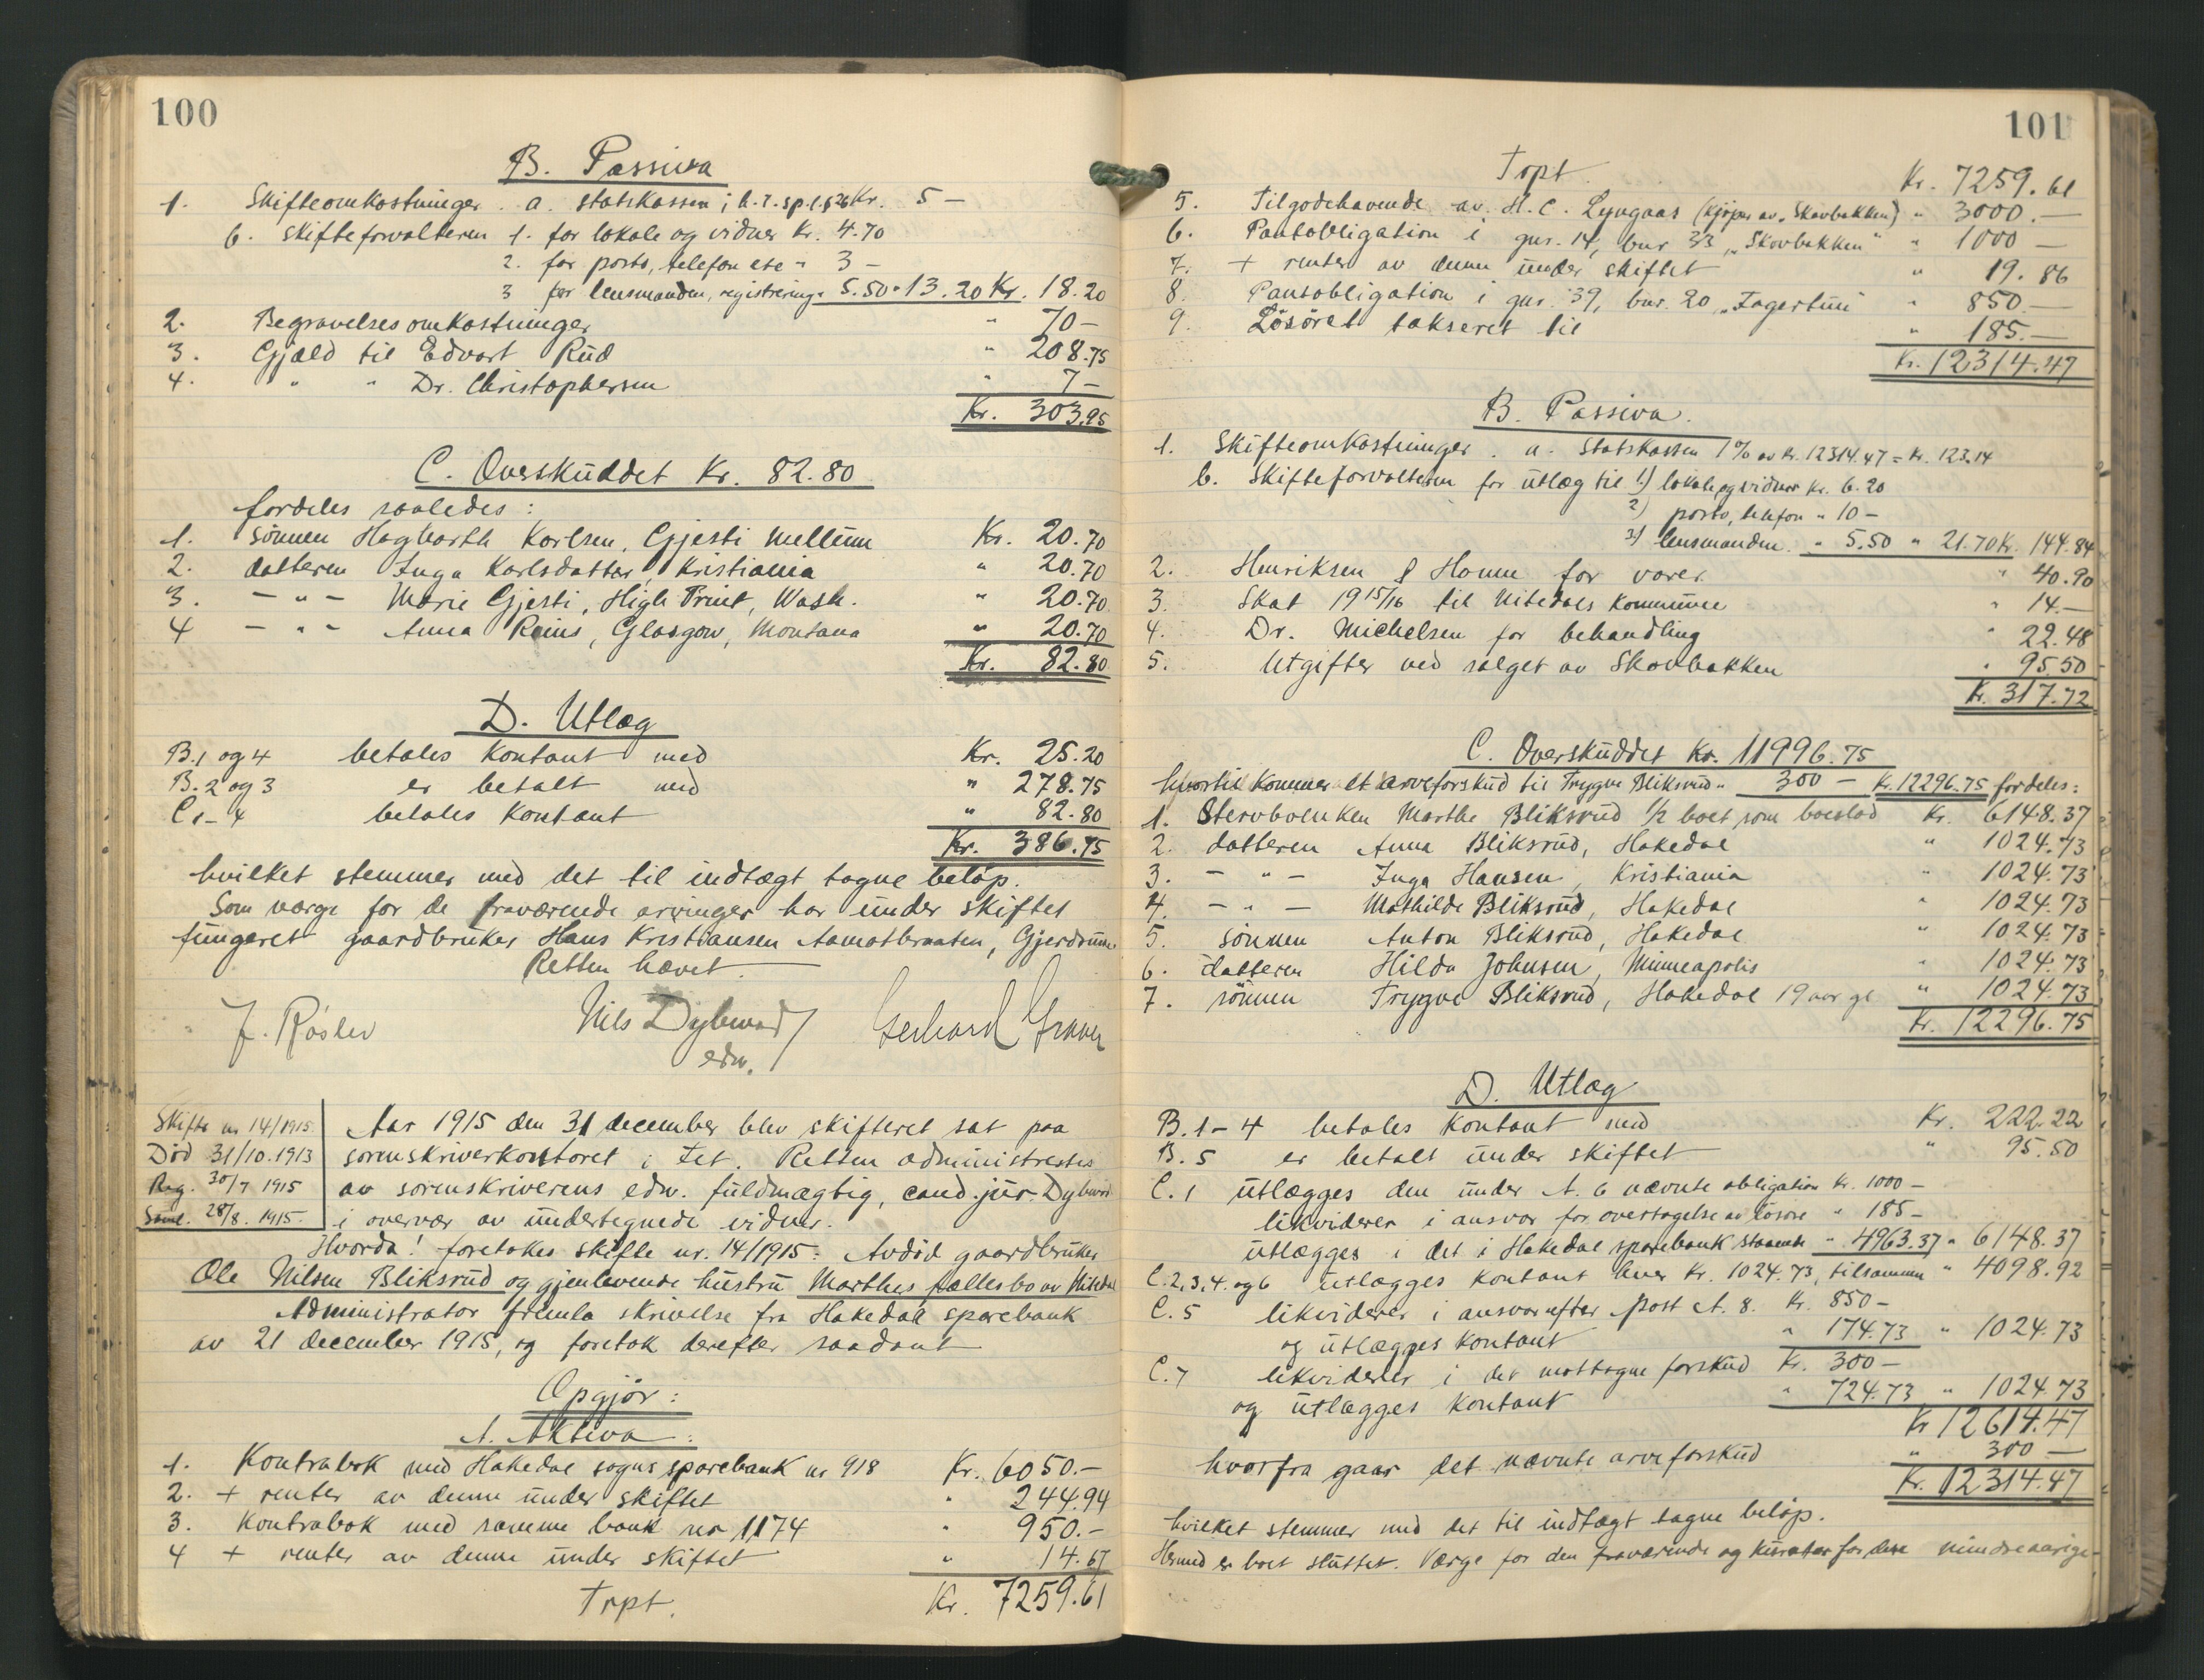 100
B. Passiva
1. Skifteomkostninger. a. statskassen; h.t. sp.l. § 26 Kr. 5 –
b. skifteforvalteren 1. for lokale og vidner Kr. 4.70
2. for porto, telefon etc " 3 –
3 for lensmanden, registrering " 5.50 " 13.20 Kr. 18.20
2. Begravelsesomkostninger " 70 –
3. Gjæld til Edvart Rud " 208.75
4. " " Dr. Christophersen " 7 –
Kr. 303.95
C. Overskuddet Kr. 82.80
fordeles saaledes:
1. sønnen Hagbarth Karlsen, Gjesti mellum Kr. 20.70
2. datteren Inga Karlsdatter, Kristiania " 20.70
3. – " – Marie Gjesti, High Point, Wash. " 20.70
4 – " – Anna Reins, Glasgow, Montana " 20.70
Kr. 82.80
D. Utlæg
B.1 og 4 betales kontant med Kr. 25.20
B.2 og 3 er betalt med " 278.75
C 1–4 betales kontant " 82.80
Kr. 386.75
hvilket stemmer med det til indtægt tagne beløp.
Som værge for de fraværende arvinger har under skiftet
fungeret gaardbruker Hans Kristiansen Aamotbraaten, Gjerdrum.
Retten hævet.
J. Røslev Nils Dybwad edv. Gerhard
Skifte nr 14/1915.
Død 31/10.1913
Reg. 30/7 1915
Saml. 28/8. 1915.
Aar 1915 den 31 december blev skifteret sat paa
sorenskriverkontoret i Fet. Retten administrertes
av sorenskriverens edv. fuldmægtig, cand. jur. Dybwad
i overvær av undertegnede vidner.
Hvorda! foretokes skifte nr. 14/1915: Avdød gaardbruker
Ole Nilsen Bliksrud og gjenlevende hustru Marthes fællesbo av Nitedal
Administrator fremla skrivelse fra Hakedal sparebank
av 21 december 1915, og foretok derefter saadant
Opgjør:
A. Aktiva:
1. Kontrabok med Hakedal sogns sparebank nr 918 Kr. 6050.–
2. + renter av denne under skiftet " 244.94
3. Kontrabok med samme bank nr 1174 " 950.–
4 + renter av denne under skiftet " 14.67
Trpt. Kr. 7259.61
101
Trpt. Kr. 7259.61
5. Tilgodehavende av H. C. Lyngaas (kjøper av "Skovbakken) " 3000.–
6. Pantobligation i gnr. 14, bnr 33 "Skovbakken" " 1000 –
7. + renter av denne under skiftet " 19.86
8. Pantobligation i gnr. 39, bnr. 20 "Fagertun" " 850 –
9. Løsøret takseret til " 185.–
Kr. 12314.47
B. Passiva.
1. Skifteomkostninger. a. Statskassen 1 % av Kr. 12314.47 = Kr. 123.14
b. Skifteforvalteren for utlæg til 1) lokale og vidner Kr. 6.20
2) porto, telefon " 10 –
3) lensmanden " 5.50 " 21.70 Kr. 144.84
2. Henriksen & Homme for varer " 40.90
3. Skat 1915/16 til Nitedals kommune " 14.–
4. Dr. Michelsen for behandling " 22.48
5. Utgifter ved salget av Skovbakken " 95.50
Kr. 317.72
C. Overskuddet Kr. 11996.75
hvortil kommer et arveforskud til Trygve Bliksrud " 300 – Kr. 12296.75 fordeles:
1. Stervboenken Marthe Bliksrud 1/2 boet som boeslod Kr. 6148.37
2. datteren Anna Bliksrud, Hakedal " 1024.73
3. – " – Inga Hansen, Kristiania " 1024.73
4. – " – Mathilde Bliksrud, Hakedal " 1024.73
5. sønnen Anton Bliksrud, Hakedal " 1024.73
6. datteren Hilda Johnsen, Minneapolis " 1024.73
7. sønnen Trygve Bliksrud, Hakedal 19 aar gl " 1024.73
Kr. 12296.75
D. Utlæg
B. 1–4 betales kontant med Kr. 222.22
B. 5 er betalt under skiftet " 95.50
C. 1 utlægges den under A. 6 nævnte obligation Kr. 1000 –
likviderer i ansvar for overtagelse av løsøre " 185 –
utlægges i det i Hakedal sparebank staaende " 4963.37 " 6148.37
C. 2, 3, 4. og 6 utlægges kontant hver Kr. 1024.73, tilsammen " 4098.92
C. 5 likviderer i ansvar efter post A. 8. Kr. 850 –
og utlægges kontant " 174.73 " 1024.73
C. 7 likviderer i det mottagne forskud Kr. 300 –
og utlægges kontant " 724.73 " 1024.73
Kr 12614.47
hvorfra gaar det nævnte arveforskud " 300 –
Kr. 12314.47
hvilket stemmer med det til indtægt tagne beløp.
Hermed er boet sluttet. Værge for den fraværende og kurator for den mindreaarige